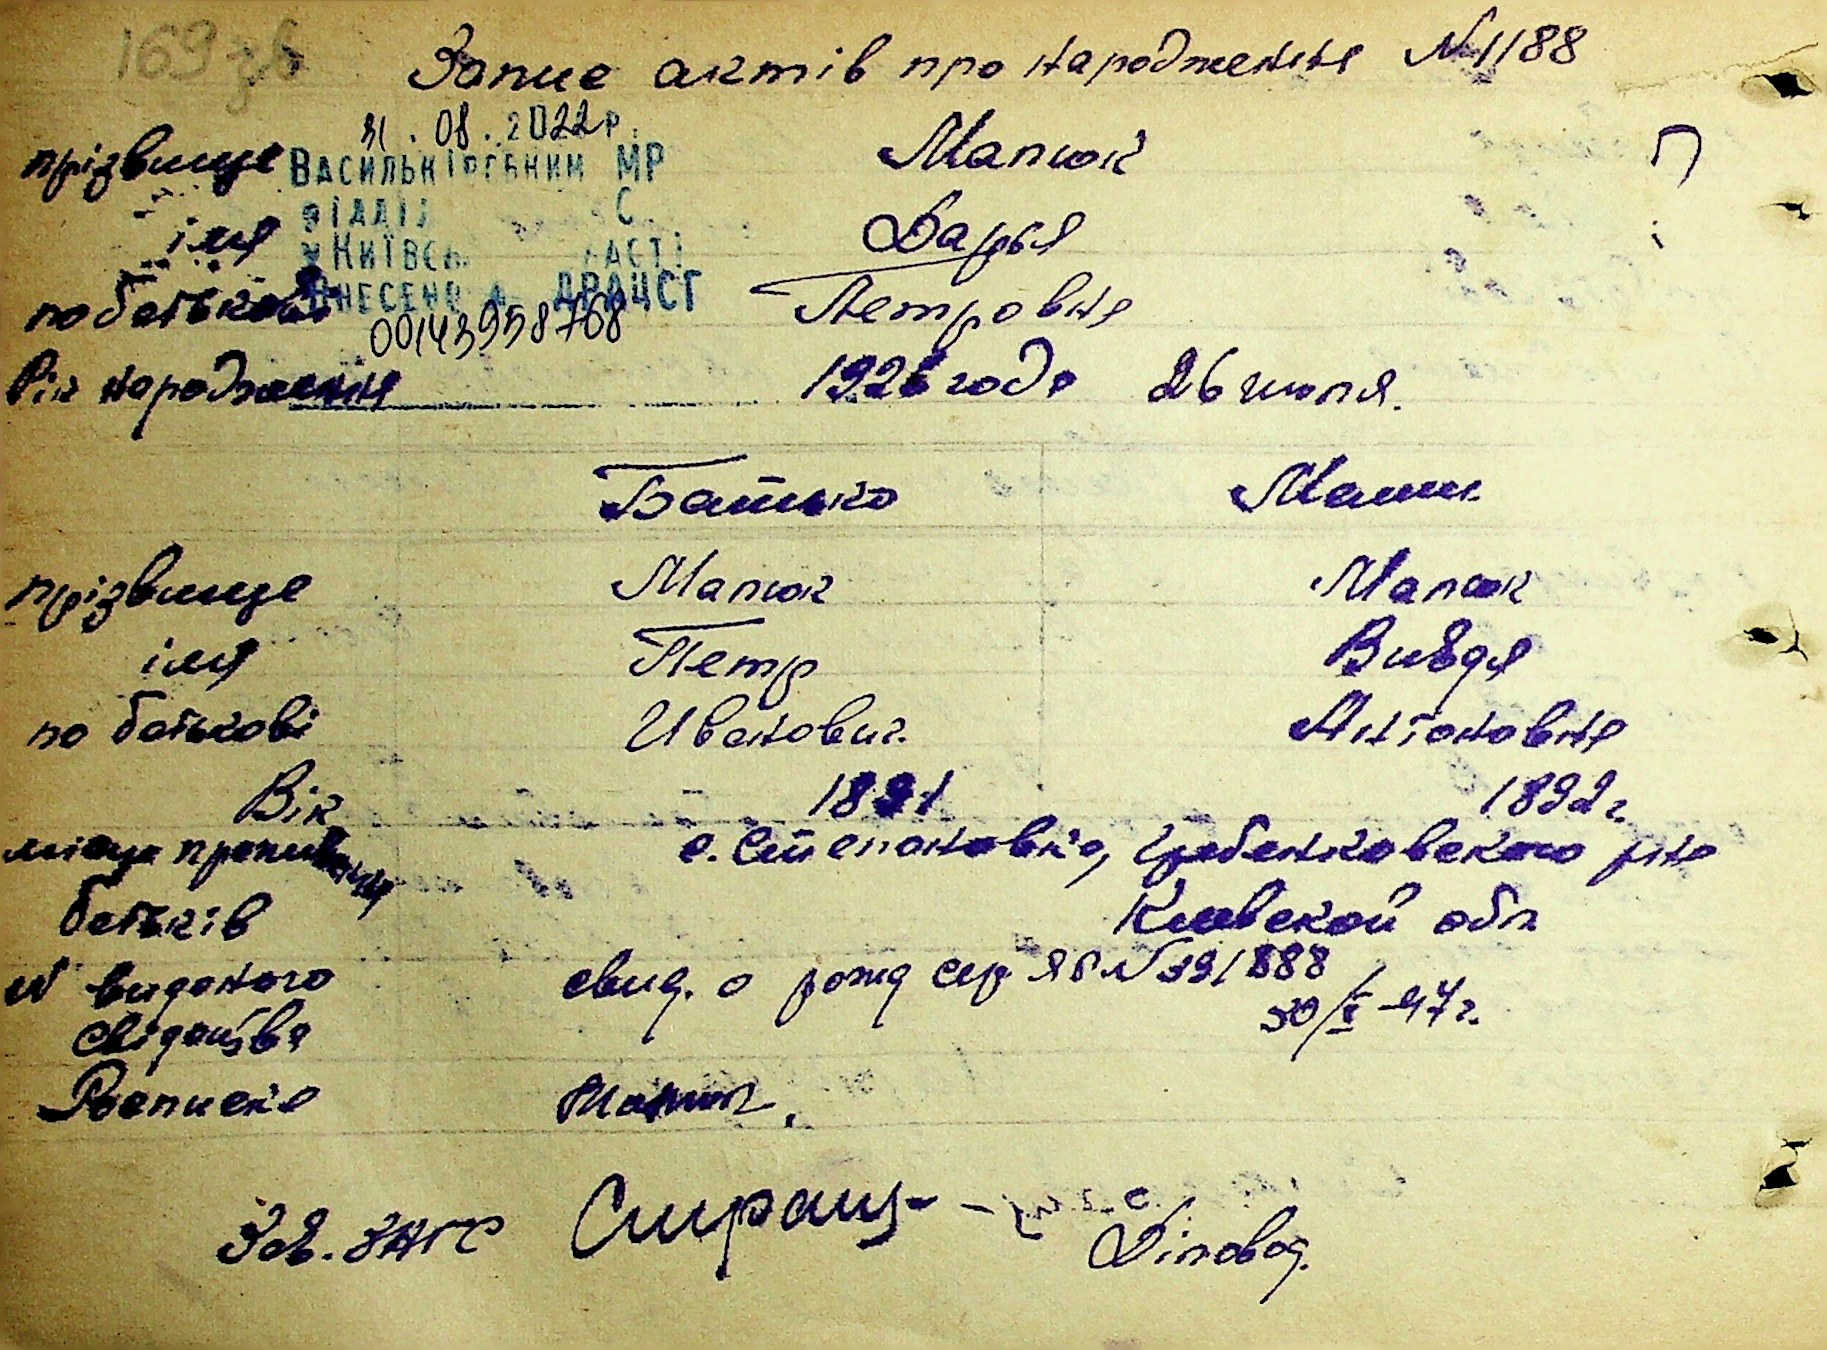 169 зв
Запис актів про народження №1188
31.08.2022р.
прізвище Малюк
ВАСИЛЬКІВСЬКИЙ МР
ВІДДІЛ С
імя Дарья
у КИЇВСЬ ЛАСТІ
ВНЕСЕНО ДРАЦСГ
по батькові Петровна
00143958768
Рік народження 1926 года 26 июля.
Батько Мати
прізвище Малюк Малюк
імя Петр Вивдя
по батькові Иванович Антоновна
Вік 1891 1892г.
місце проживання с. Степановка, Гребенковского р-на
батьків Киевской обл
№ виданого свид. о рожд сер ЯБ №391888
свідоцтва 30/X-47г.
Росписка Малюк.
Зав. ЗАГС Діловод.